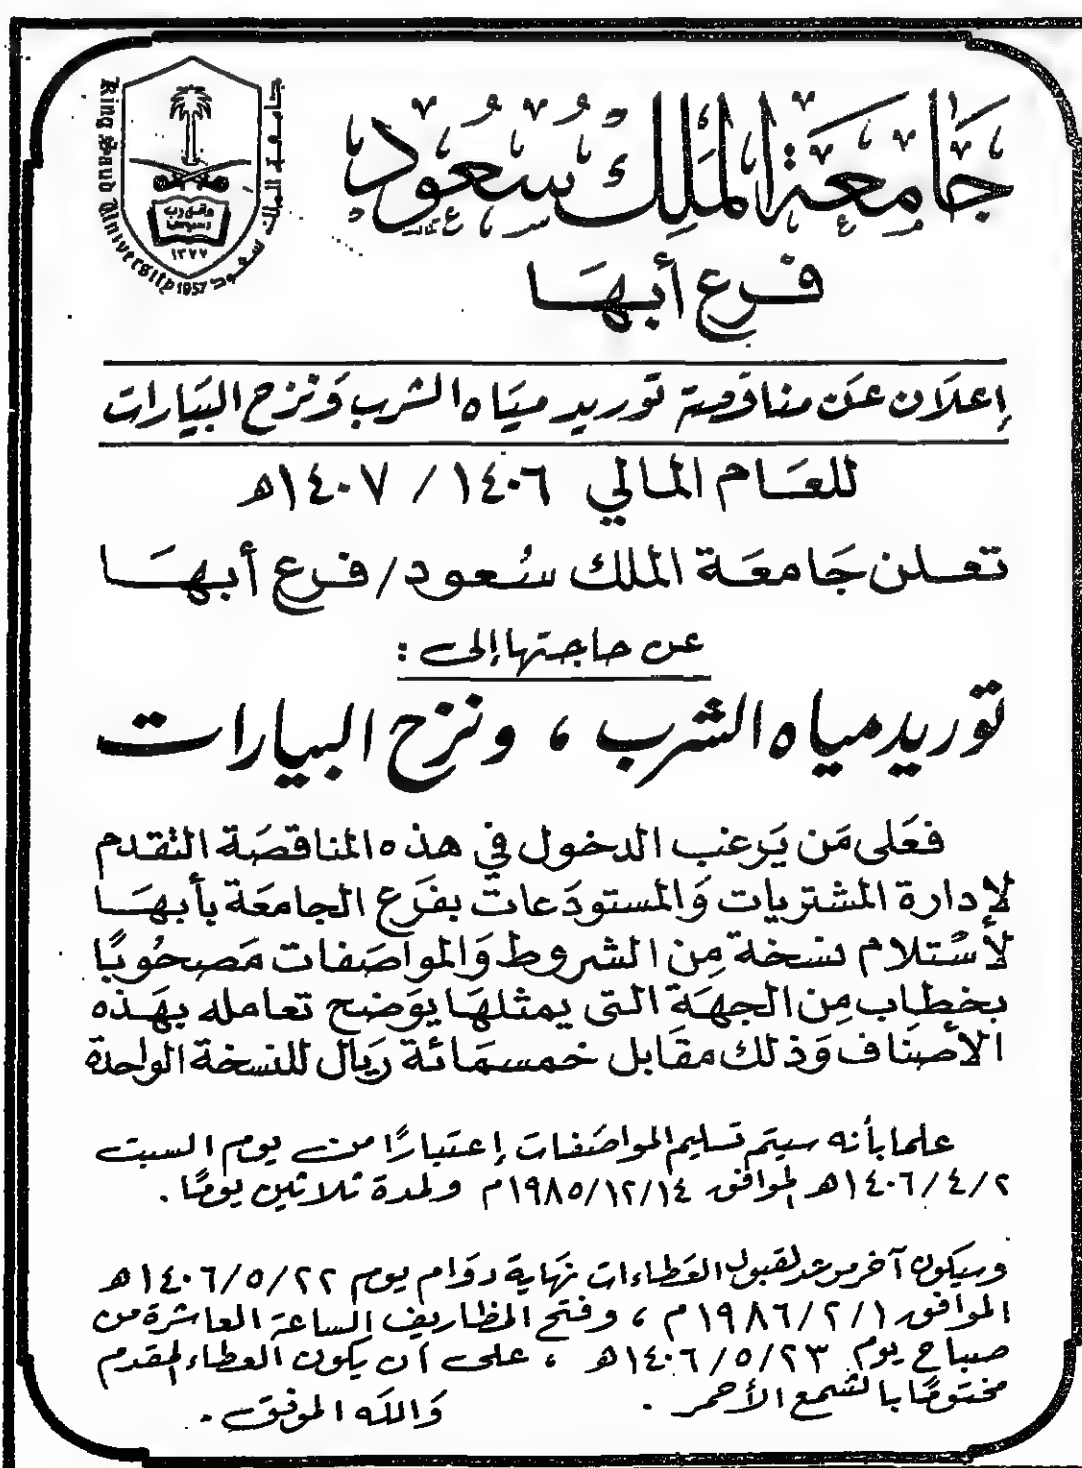 جَامعَة المَلِك سُعُود
King Saud University 1957
جامعة الملك سعود
١٣٧٧
فرع أبهَا
إعلَان عَن مناقصة توريد ميَاه الشرب وَنزح البيَارات
للعَام المالي ١٤٠٦ / ١٤٠٧هـ
تعلن جَامعَة الملك سُعود/فرع أبهَا
عن حاجتها إلى :
توريد مياه الشرب ، ونزح البيارات
فعَلى مَن يَرغب الدخول في هذه المناقصَة التقدم
لإدارة المشتريات وَالمستودَعات بفَرع الجامعَة بأبهَا
لأستلام نسخة مِن الشروط وَالمواصَفات مَصحُوبًا
بخطاب مِن الجهَة التى يمثلهَا يوَضح تعامله بهَذه
الأصنَاف وَذلك مقَابل خمسمَائة ريَال للنسخة الواحدة
علما بأنه سيتم تسليم المواصَفات إعتبارًا من يوم السبت
١٤٠٦/٤/٢هـ الموافق ١٩٨٥/١٢/١٤م ولمدة ثلاثين يومًا .
وسيكون آخر موعد لقبول العَطاءات نهَاية دوَام يوم ١٤٠٦/٥/٢٢هـ
الموافق ١٩٨٦/٢/١م ، وفتح المظاريف الساعة العاشرة من
صباح يوم ١٤٠٦/٥/٢٣هـ ، على أن يكون العطاء المقدم
مختومًا بالشمع الأحمر . وَالله الموفق .